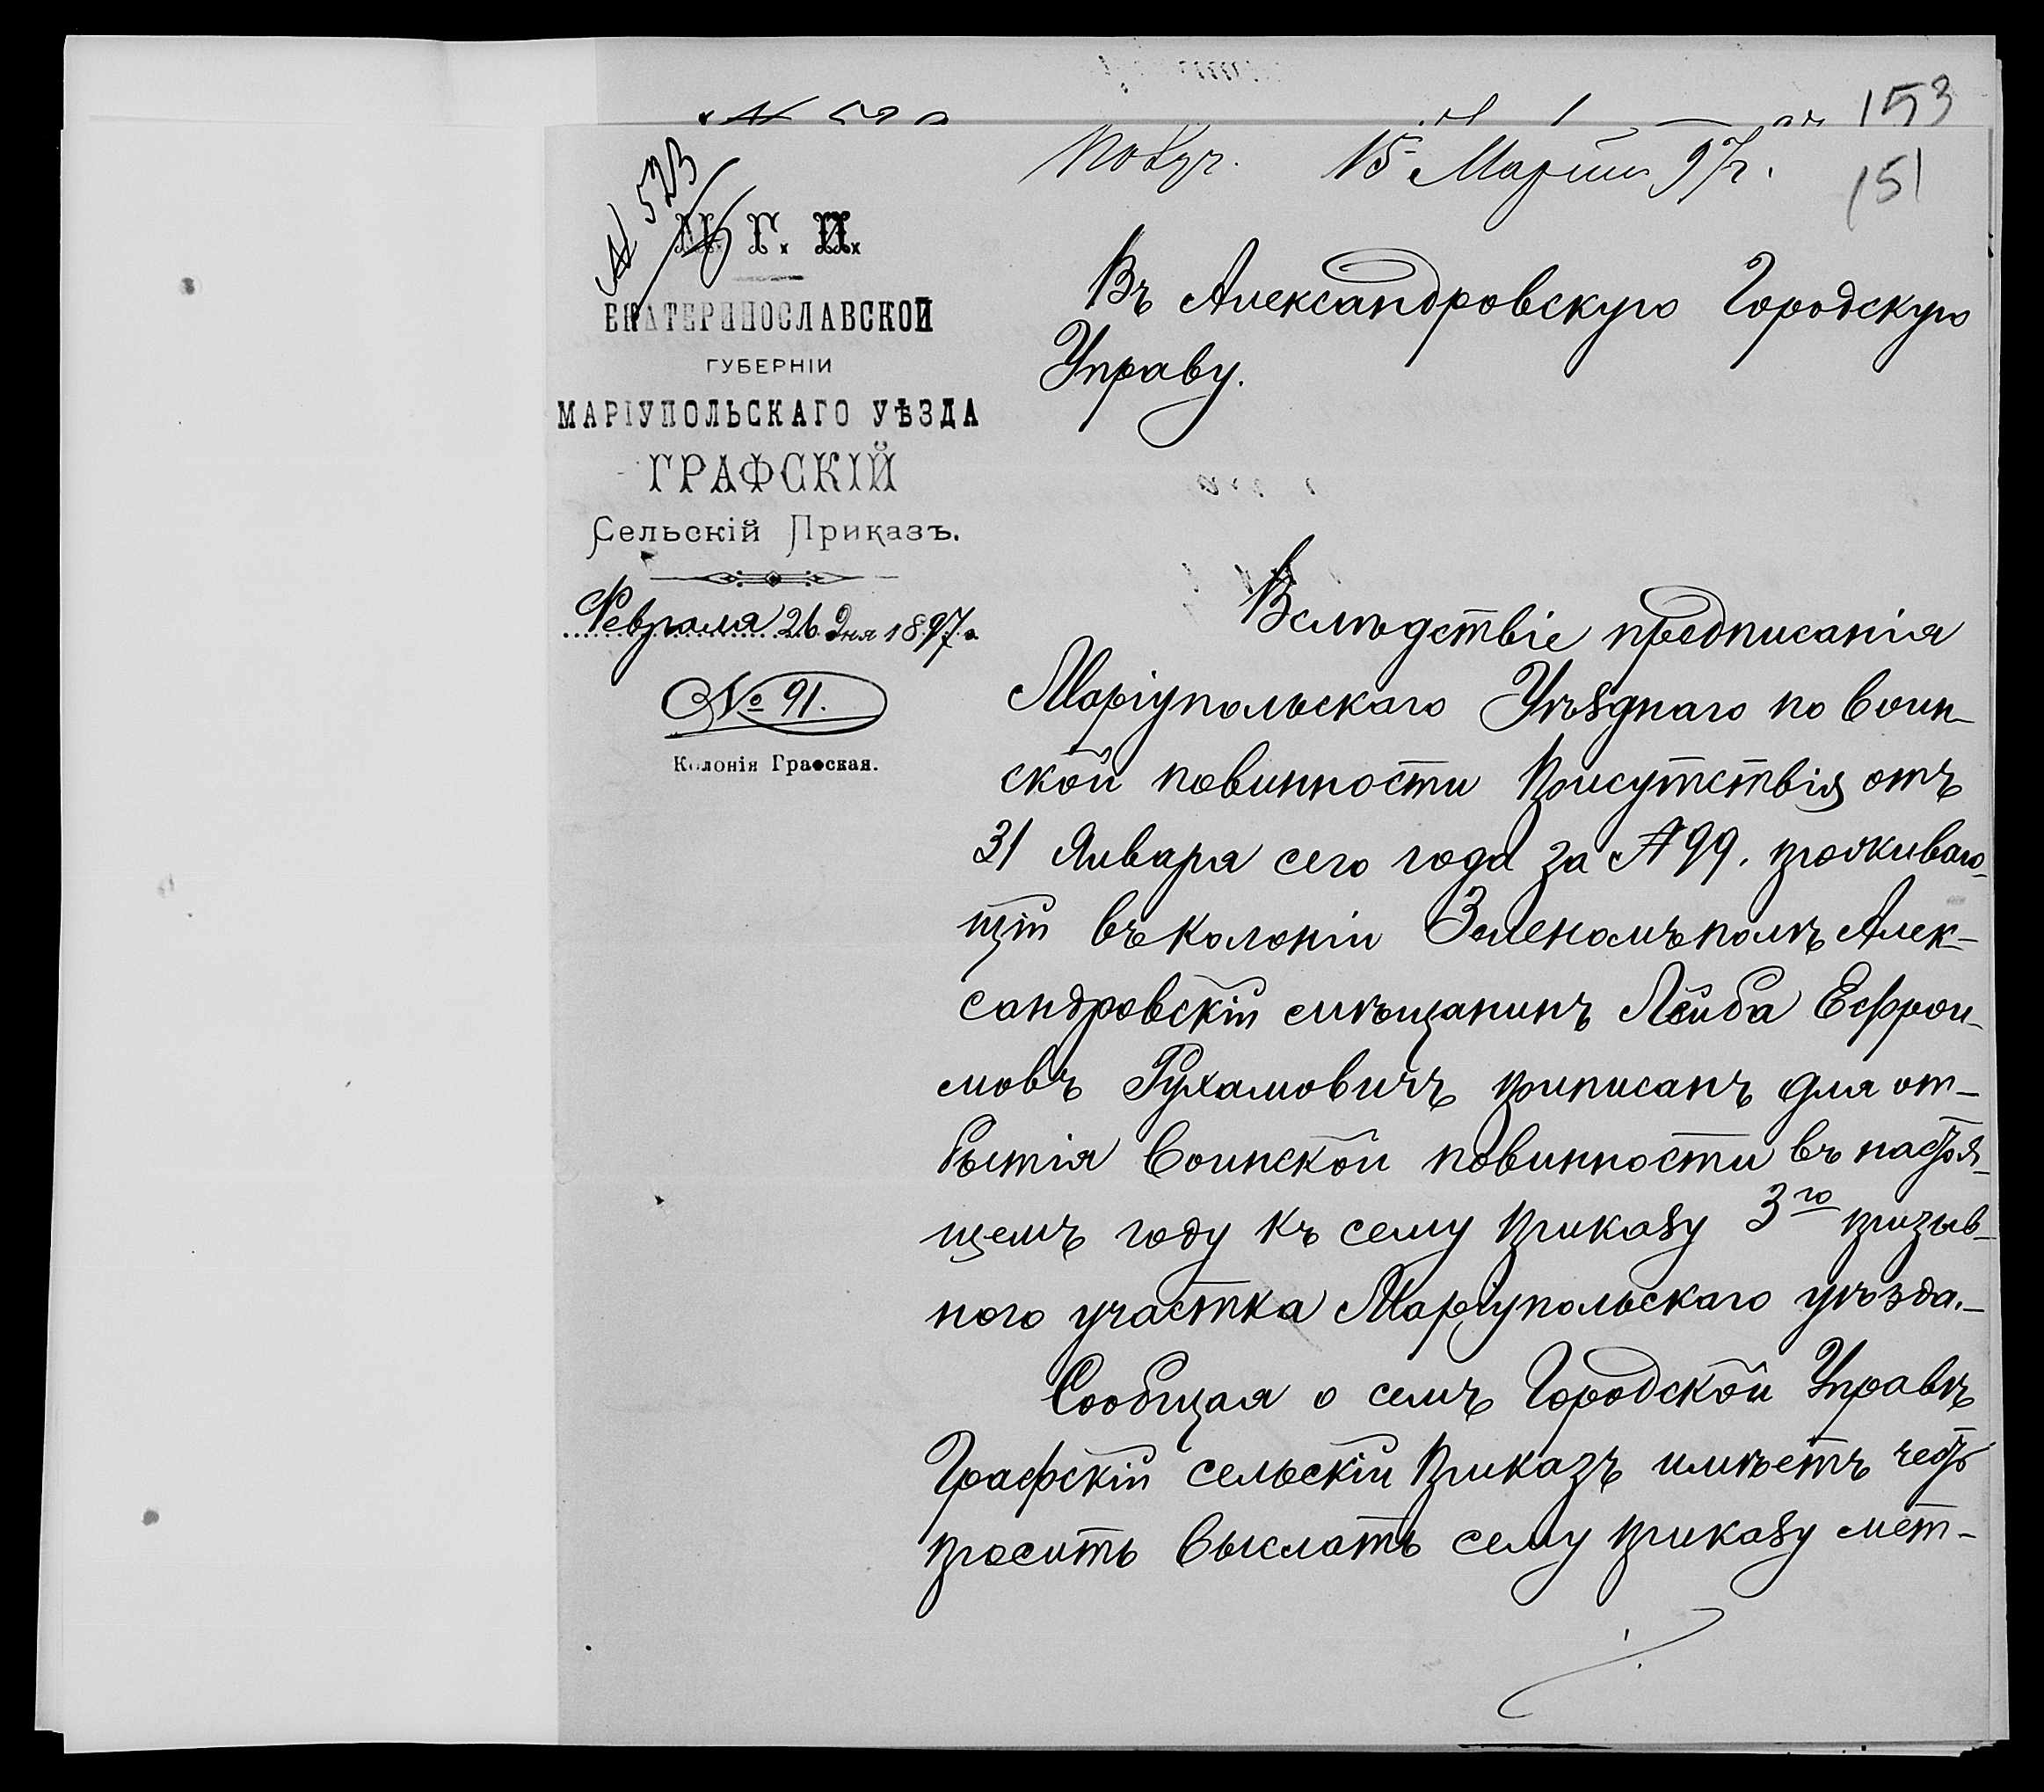 153
Получ. 15 Марта 97г.
151
№ 523
М. Г. И.
ЕКАТЕРИНОСЛАВСКОЙ
ГУБЕРНІИ
МАРІУПОЛЬСКАГО УѢЗДА
ГРАФСКІЙ
Сельскій Приказъ.
Февраля 26 дня 1897 г.
№ 91.
Колонія Графская.
Въ Александровскую Городскую
Управу.
Вслѣдствіе предписанія
Маріупольскаго Уѣзднаго по воин-
ской повинности Присутствія отъ
31 Января сего года за № 99. проживаю-
щій въ колоніи Зеленомъполѣ Алек-
сандровскій мѣщанинъ Лейба Ефрои-
мовъ Рухамовичъ приписанъ для от-
бытія воинской повинности въ настоя-
щемъ году къ сему приказу 3го призыв-
ного участка Маріупольскаго уѣзда.-
Сообщая о семъ Городской Управѣ
Графскій сельскій приказъ имѣетъ честь
просить выслать сему приказу мет-